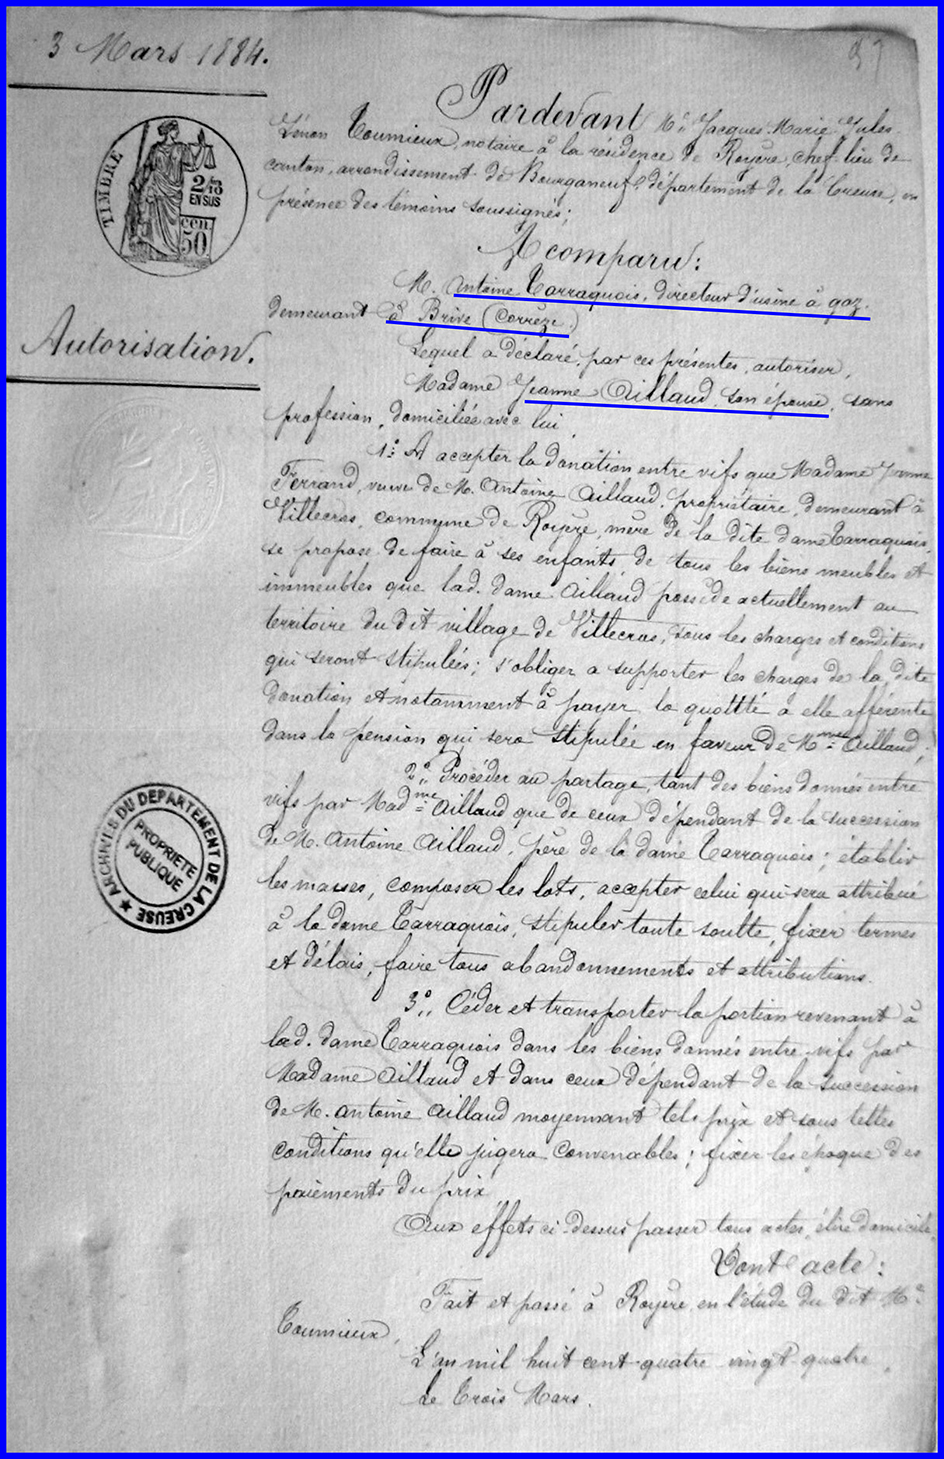 3 Mars 1884.
37
Pardevant Me. Jacques Marie Jules
Lénon Toumieux, notaire à la résidence de Royère, chef-lieu de
canton, arrondissement de Bourganeuf, département de la Creuse, en
présence des témoins soussignés;
TIMBRE
2/10
EN SUS
CEN.
50
A comparu:
M. Antoine Tarraquois, directeur d'usine à gaz.
demeurant à Brive (Corrèze.)
Autorisation.
Lequel a déclaré, par ces présentes, autoriser,
Madame Jeanne Aillaud, son épouse, sans
profession, domiciliée avec lui
1° A accepter la donation entre vifs que Madame Jeanne
Ferrand, veuve de M. Antoine Aillaud, propriétaire, demeurant à
Villecros, commune de Royère, mère de la dite dame Tarraquois,
se propose de faire à ses enfants, de tous les biens meubles et
immeubles que lad. dame Aillaud possède actuellement au
territoire du dit village de Villecros, sous les charges et conditions
qui seront stipulées; s'obliger a supporter les charges de la dite
donation et notamment à payer la quotité à elle afférente
dans la pension qui sera stipulée en faveur de Mme Aillaud,
2° Procéder au partage, tant des biens donnés entre
vifs par Madme Aillaud que de ceux dépendant de la succession
de M. Antoine Aillaud, père de la dame Tarraquois; établir
les masses, composer les lots, accepter celui qui sera attribué
à la dame Tarraquois, stipuler toute soulte, fixer termes
et délais, faire tous abandonnements et attributions.
ARCHIVES DU DEPARTEMENT DE LA CREUSE
PROPRIETE
PUBLIQUE
3° Céder et transporter la portion revenant à
lad. dame Tarraquois dans les biens donnés entre vifs par
Madame Aillaud et dans ceux dépendant de la succession
de M. Antoine Aillaud moyennant tels prix et sous telles
conditions qu'elle jugera convenables; fixer les époque des
paiements du prix
Aux effets ci-dessus passer tous actes, élire domicile.
Dont acte:
Fait et passé à Royère, en l'étude du dit Me.
Toumieux,
L'an mil huit cent quatre vingt quatre,
Le Trois Mars.